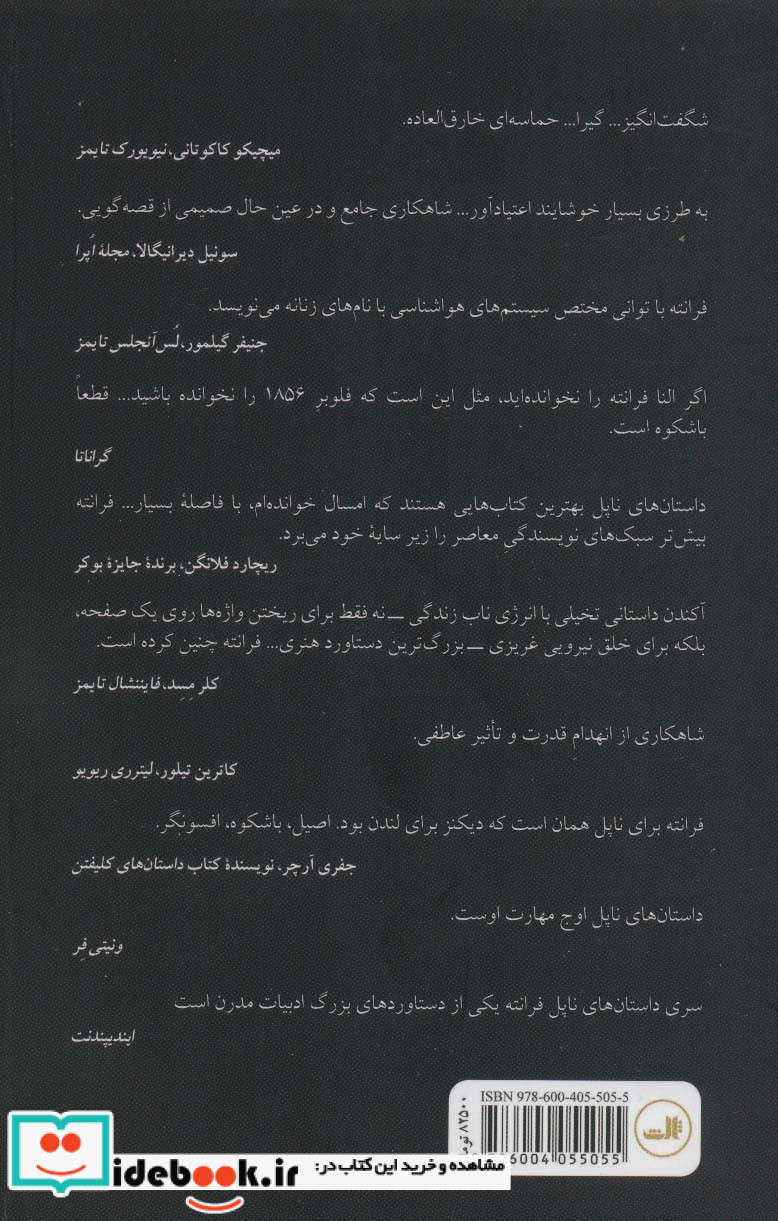 شگفت‌انگیز... گیرا... حماسه‌ای خارق‌العاده.
میچیکو کاکوتانی، نیویورک تایمز
به طرزی بسیار خوشایند اعتیادآور... شاهکاری جامع و در عین حال صمیمی از قصه‌گویی.
سونیل دیرانیگالا، مجلهٔ اُپرا
فرانته با توانی مختص سیستم‌های هواشناسی با نام‌های زنانه می‌نویسد.
جنیفر گیلمور، لُس‌آنجلس تایمز
اگر النا فرانته را نخوانده‌اید، مثل این است که فلوبرِ ۱۸۵۶ را نخوانده باشید... قطعاً
باشکوه است.
گراناتا
داستان‌های ناپل بهترین کتاب‌هایی هستند که امسال خوانده‌ام، با فاصلهٔ بسیار... فرانته
بیش‌تر سبک‌های نویسندگیِ معاصر را زیر سایهٔ خود می‌برد.
ریچارد فلانگن، برندهٔ جایزهٔ بوکر
آکندن داستانی تخیلی با انرژی ناب زندگی ــ نه فقط برای ریختن واژه‌ها روی یک صفحه،
بلکه برای خلق نیرویی غریزی ــ بزرگ‌ترین دستاورد هنری... فرانته چنین کرده است.
کلر مِسِد، فایننشال تایمز
شاهکاری از انهدامِ قدرت و تأثیر عاطفی.
کاترین تیلور، لیترری ریویو
فرانته برای ناپل همان است که دیکنز برای لندن بود. اصیل، باشکوه، افسونگر.
جفری آرچر، نویسندهٔ کتاب داستان‌های کلیفتن
داستان‌های ناپل اوج مهارت اوست.
ونیتی فِر
سری داستان‌های ناپل فرانته یکی از دستاوردهای بزرگ ادبیات مدرن است
ایندیپندنت
ISBN 978-600-405-505-5
6004 055055
۸۲۵۰۰ توما
ثالث
مشاهده و خرید این کتاب در:
idebook.ir